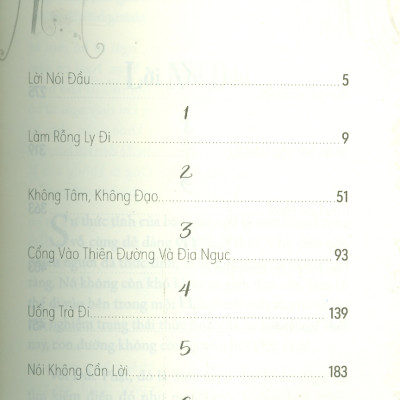 Lời Nói Đầu 5
1
Làm Rỗng Ly Đi 9
2
Không Tâm, Không Đạo 51
3
Cổng Vào Thiên Đường Và Địa Ngục 93
4
Uống Trà Đi 139
5
Nói Không Cần Lời 183